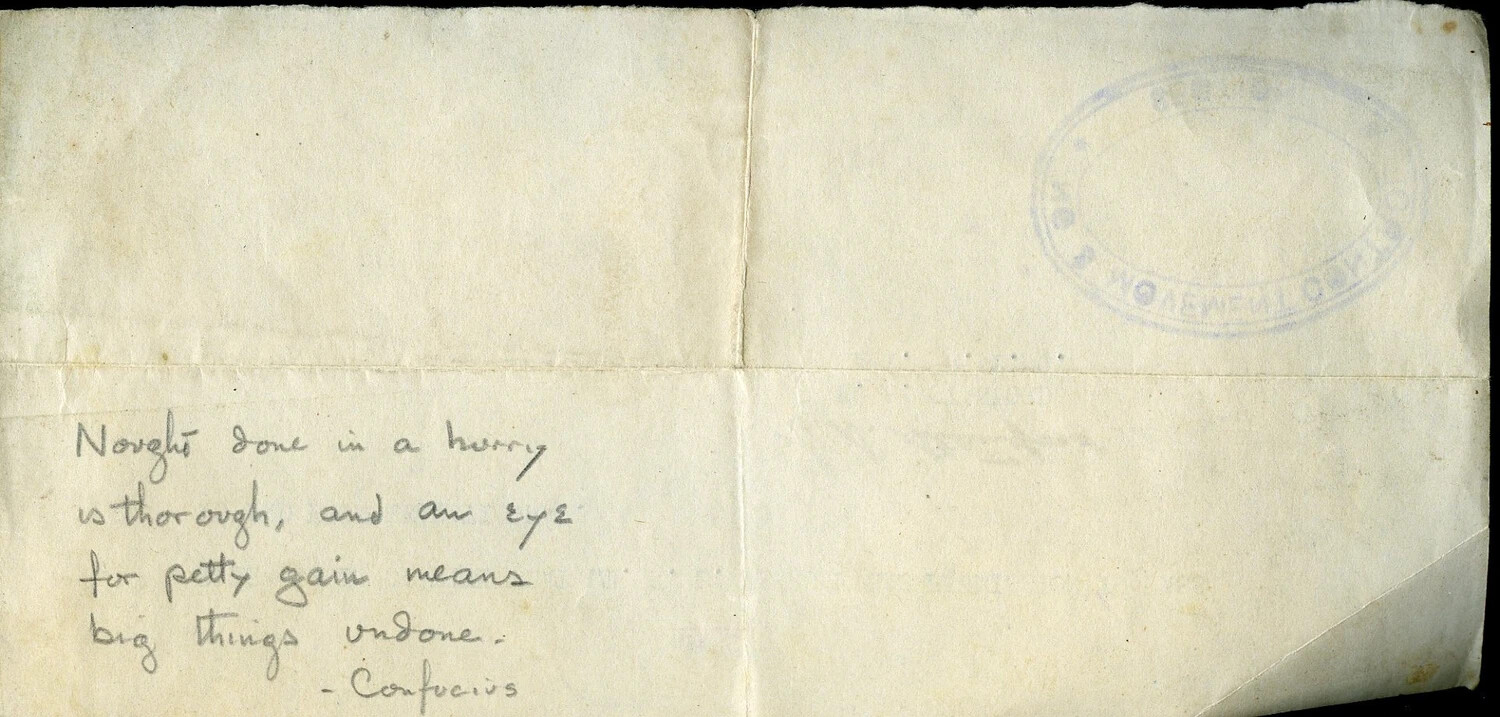 Nought done in a hurry
is thorough, and an eye
for petty gain means
big things undone.
- Confucius